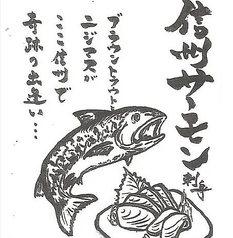 信州サーモン
刺身
ブラウントラウト
ニジマスが
ここ信州で
奇跡の出逢い…